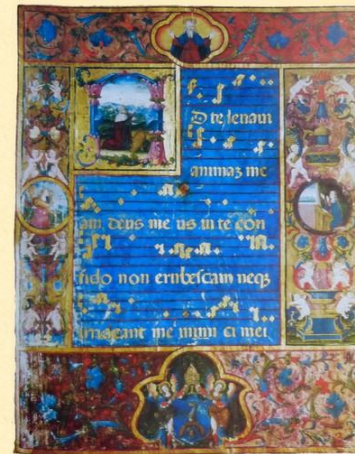 D te leuaui
animaz me
am deus me us in te con
fido non erubescam neqz
irrideant me inimi ci mei